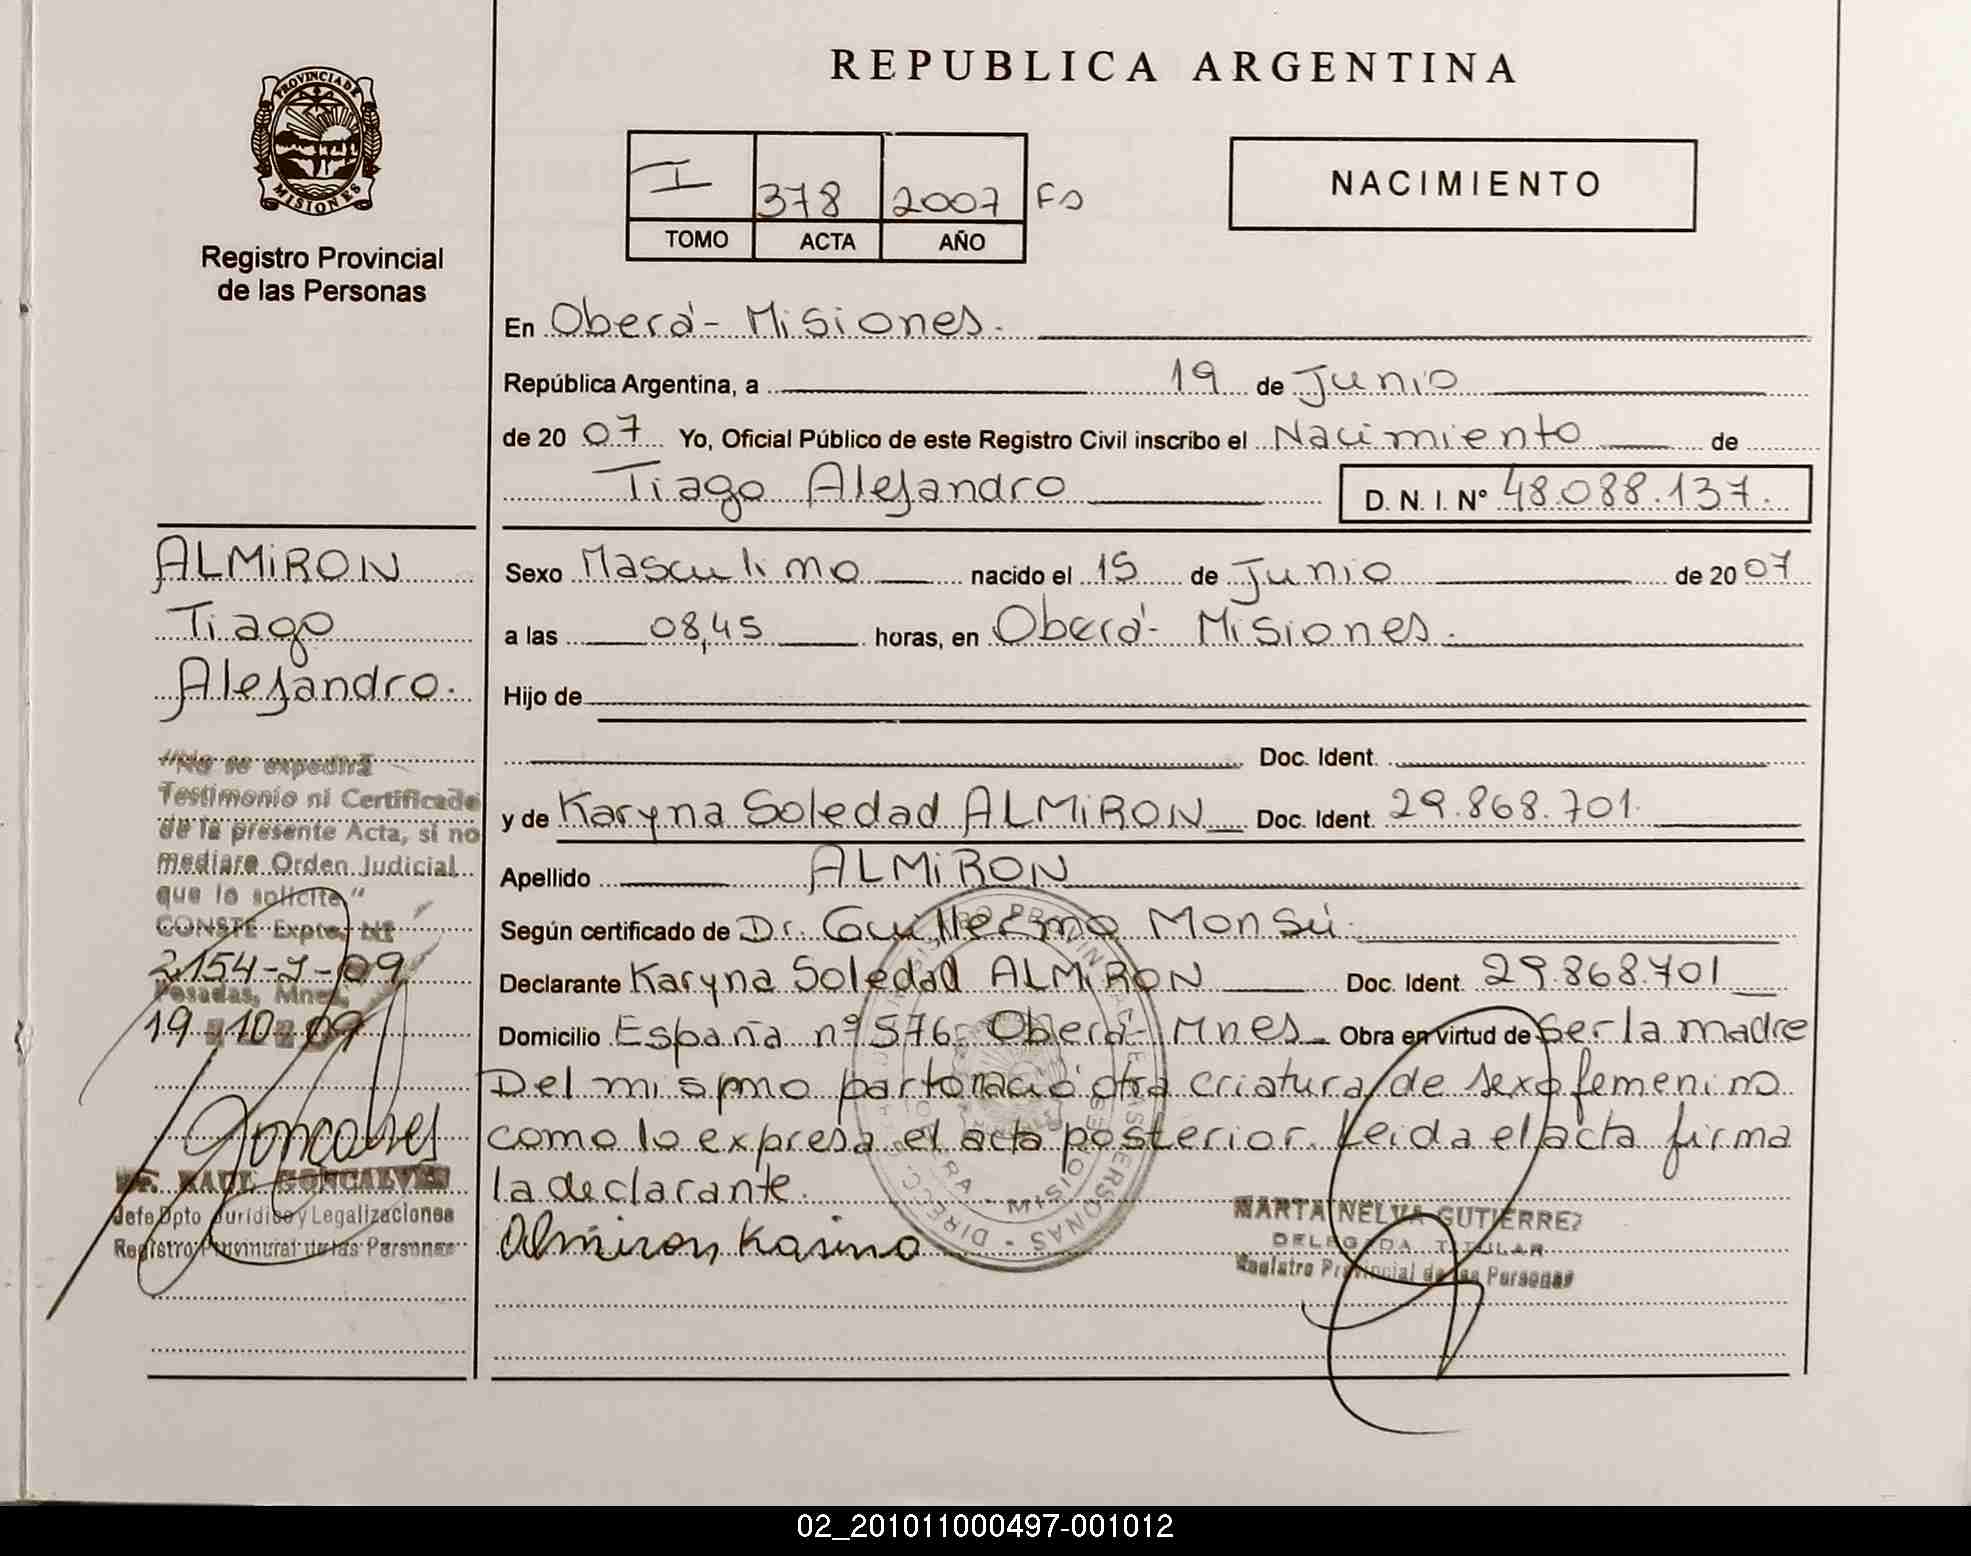 REPUBLICA ARGENTINA
PROVINCIA DE MISIONES
Registro Provincial
de las Personas
I 378 2007 Fs
TOMO ACTA AÑO
NACIMIENTO
En Oberá - Misiones.
República Argentina, a 19 de Junio
de 20 07 Yo, Oficial Público de este Registro Civil inscribo el Nacimiento de
Tiago Alejandro D. N. I. Nº 48.088.137.
Sexo Masculino nacido el 15 de Junio de 20 07
a las 08,45 horas, en Oberá - Misiones.
Hijo de
Doc. Ident.
y de Karyna Soledad ALMiRON Doc. Ident. 29.868.701.
Apellido ALMiRON
Según certificado de Dr. Guillermo Monsú.
Declarante Karyna Soledad ALMiRON Doc. Ident. 29.868.701
Domicilio España nº 576 - Oberá - Mnes Obra en virtud de Ser la madre
Del mismo parto nació otra criatura de sexo femenino
como lo expresa el acta posterior. Leida el acta firma
la declarante.
Almiron Karina
MARTA NELVA GUTIERREZ
DELEGADA TITULAR
Registro Provincial de las Personas
ALMiRON
Tiago
Alejandro.
"No se expedirá
Testimonio ni Certificado
de la presente Acta, si no
mediare Orden Judicial
que lo solicite"
CONSTE Expte. Nº
2154-J-09
Posadas, Mnes,
19 10 09
Goncalves
RAUL GONCALVES
Jefe Dpto Jurídico y Legalizaciones
Registro Provincial de las Personas
02_201011000497-001012